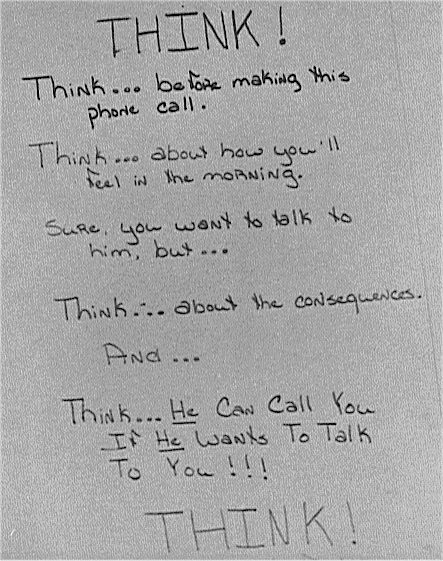 THINK!
Think... before making this
phone call.
Think... about how you'll
feel in the morning.
Sure, you want to talk to
him, but...
Think... about the consequences.
And...
Think... He Can Call You
If He Wants To Talk
To You!!!
THINK!